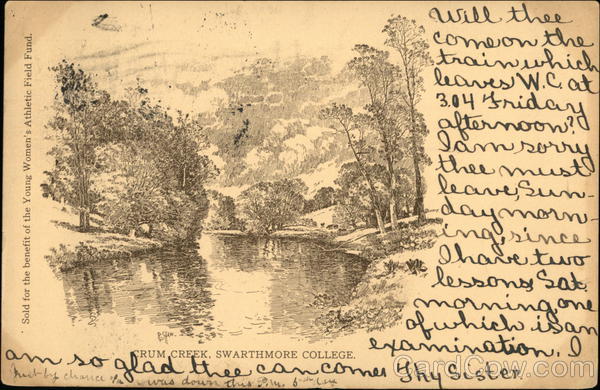 Sold for the benefit of the Young Women's Athletic Field Fund.
Will thee
come on the
train which
leaves W.C. at
3.04 Friday
afternoon?
I am sorry
thee must
leave, Sun-
day morn-
ing, since
I have two
lessons Sat.
morning one
of which is an
examination. I
am so glad thee can come. Thy Sister.
CRUM CREEK, SWARTHMORE COLLEGE.
was down this P.M.
CardCow.com